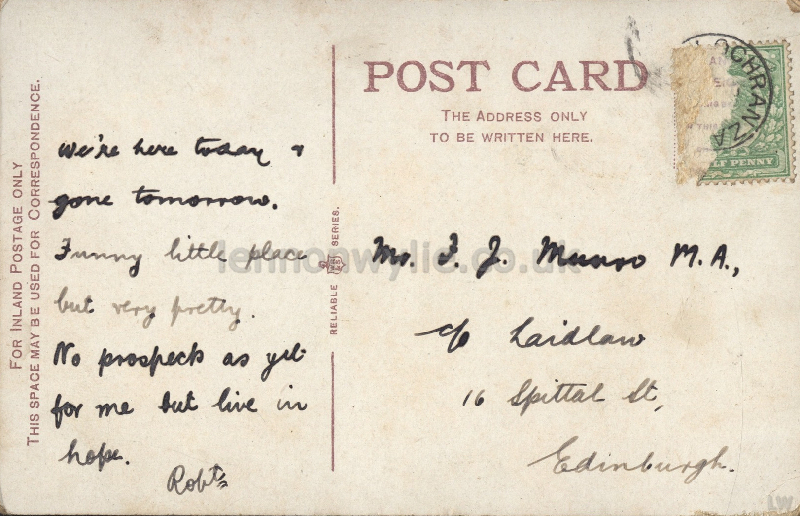 FOR INLAND POSTAGE ONLY
THIS SPACE MAY BE USED FOR CORRESPONDENCE.
We're here today &
gone tomorrow.
Funny little place
but very pretty.
No prospects as yet
for me but live in
hope.
Robt
RELIABLE SERIES.
POST CARD
THE ADDRESS ONLY
TO BE WRITTEN HERE.
LOCHRANZA
LF PENNY
Mr. F. J. Munro M.A.,
c/o Laidlaw
16 Spittal St,
Edinburgh.
lennonwylie.co.uk
LW